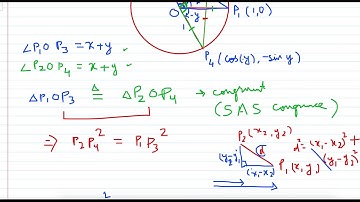 O x-y P₁ (1,0)
1
P₄ (cos(y), -sin y)
∠P₁OP₃ = x+y
∠P₂OP₄ = x+y
ΔP₁OP₃ ≅ ΔP₂OP₄ → congruent
(SAS congruence)
⇒ P₂P₄² = P₁P₃²
P₂(x₂, y₂) d²=(x₁-x₂)²+
(y₁-y₂)²
d
(y₂-y₁)
P₁(x₁, y₁)
(x₁-x₂)